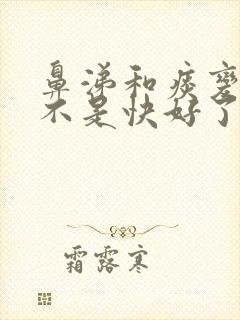 鼻涕和痰变
不是快好了
霜露寒